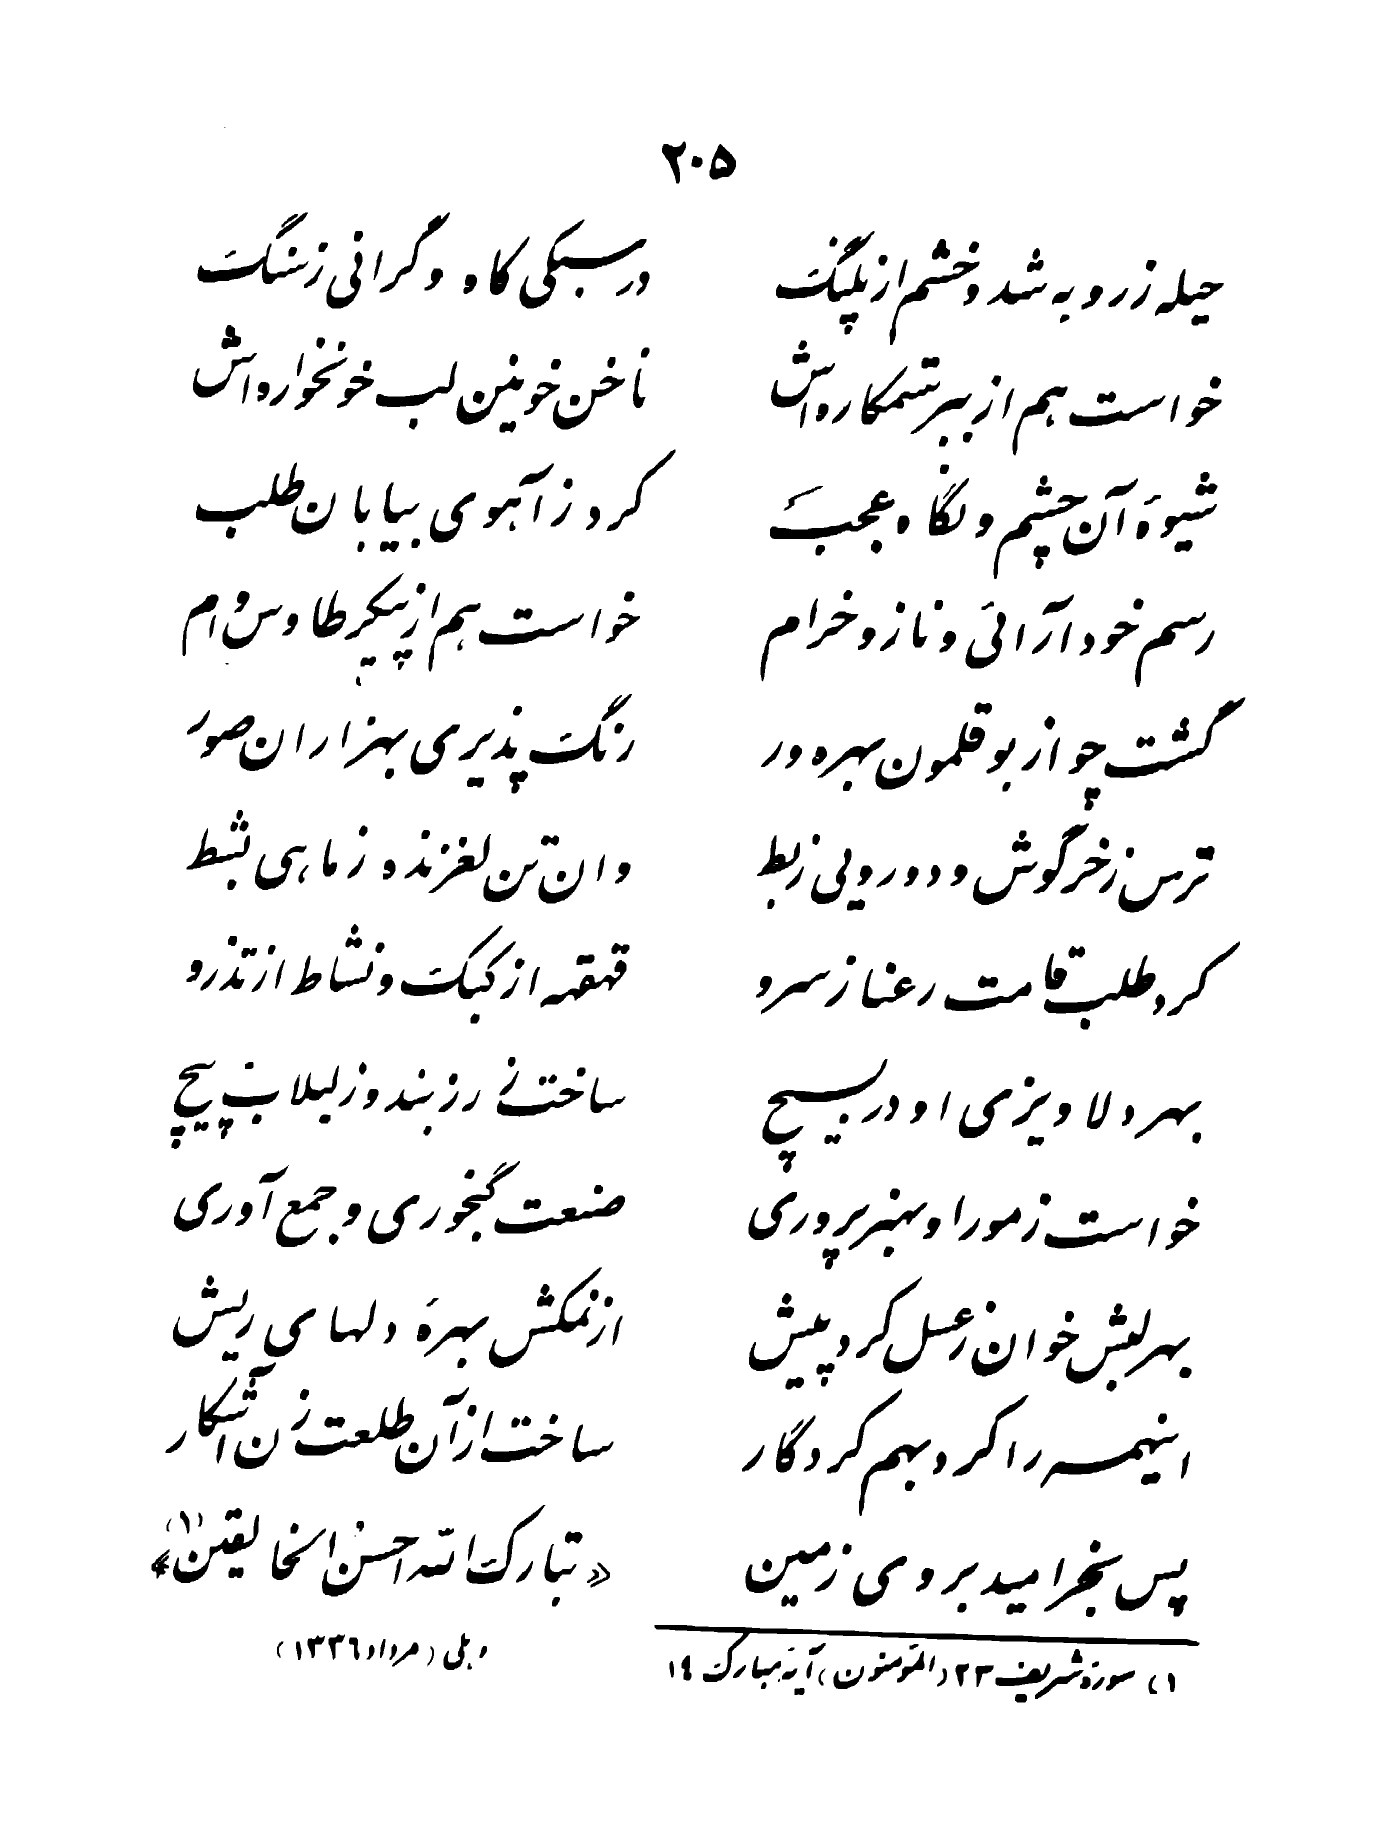 ۲۰۵
حیله ز روبه شد و خشم از پلنگ در سبکی کاه و گرانی ز سنگ
خواست هم از ببر ستمکاره‌اش ناخن خونین لب خونخواره‌اش
شیوهٔ آن چشم و نگاه عجب کرد ز آهوی بیابان طلب
رسم خودآرائی و ناز و خرام خواست هم از پیکر طاوس وام
گشت چو از بوقلمون بهره ور رنگ پذیری بهزاران صور
ترس ز خرگوش و دورویی ز بط وان تن لغزنده ز ماهی بشط
کرد طلب قامت رعنا ز سرو قهقهه از کبک و نشاط از تذرو
بهر دلاویزی او در بسیج ساخت ز رز بند و ز لبلاب پیچ
خواست ز مور او بهنر پروری صنعت گنجوری و جمع آوری
بهر لبش خوان ز عسل کرد پیش از نمکش بهرهٔ دلهای ریش
اینهمه را کرد بهم کردگار ساخت از آن طلعت زن آشکار
پس بخرامید بروی زمین «تبارک الله احسن الخالیقین» (۱)
دهلی (مرداد ۱۳۳۶)
۱) سورهٔ شریف ۲۳ (المؤمنون) آیهٔ مبارک ۱۴